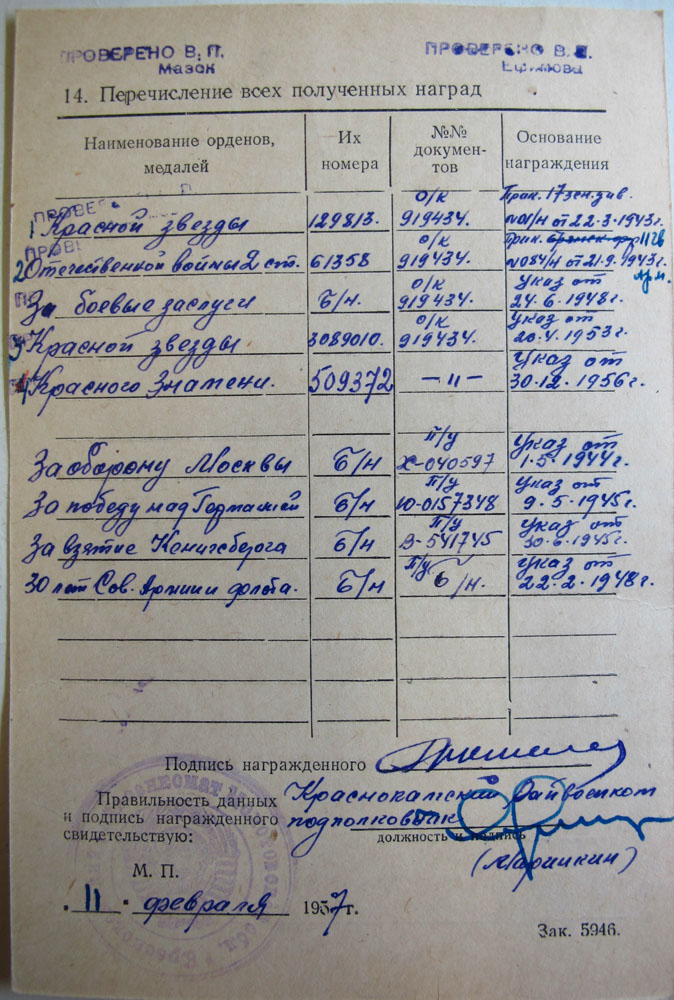 ПРОВЕРЕНО В. П. ПРОВЕРЕНО В. П.
Мазок Ефимова
14. Перечисление всех полученных наград
Наименование орденов, медалей Их номера №№ документов Основание награждения
1 Красной звезды 129813. о/к 919434. Прик. 17 зен. див. №01/н от 22-3-1943г.
2 Отечественной войны 2 ст. 61358 о/к 919434. Прик. 11 гв арм. №084/н от 21.9.1943г.
За боевые заслуги б/н. о/к 919434. Указ от 24.6.1948г.
3 Красной звезды 3089010. о/к 919434. Указ от 20.4.1953г.
4 Красного Знамени. 509372 —"— Указ от 30.12.1956г.
За оборону Москвы б/н п/у Х-040597 Указ от 1.5.1944г.
За победу над Германией б/н п/у Ю-0157348 Указ от 9.5.1945г.
За взятие Кенигсберга б/н п/у Указ от 30.6.1945г.
30 лет Сов. Армии и флота. б/н п/у б/н. Указ от 22.2.1948г.
Подпись награжденного
Правильность данных Краснокамский Райвоенком
и подпись награжденного подполковник
свидетельствую: должность и подпись
М. П.
11 февраля 1957г.
Зак. 5946.